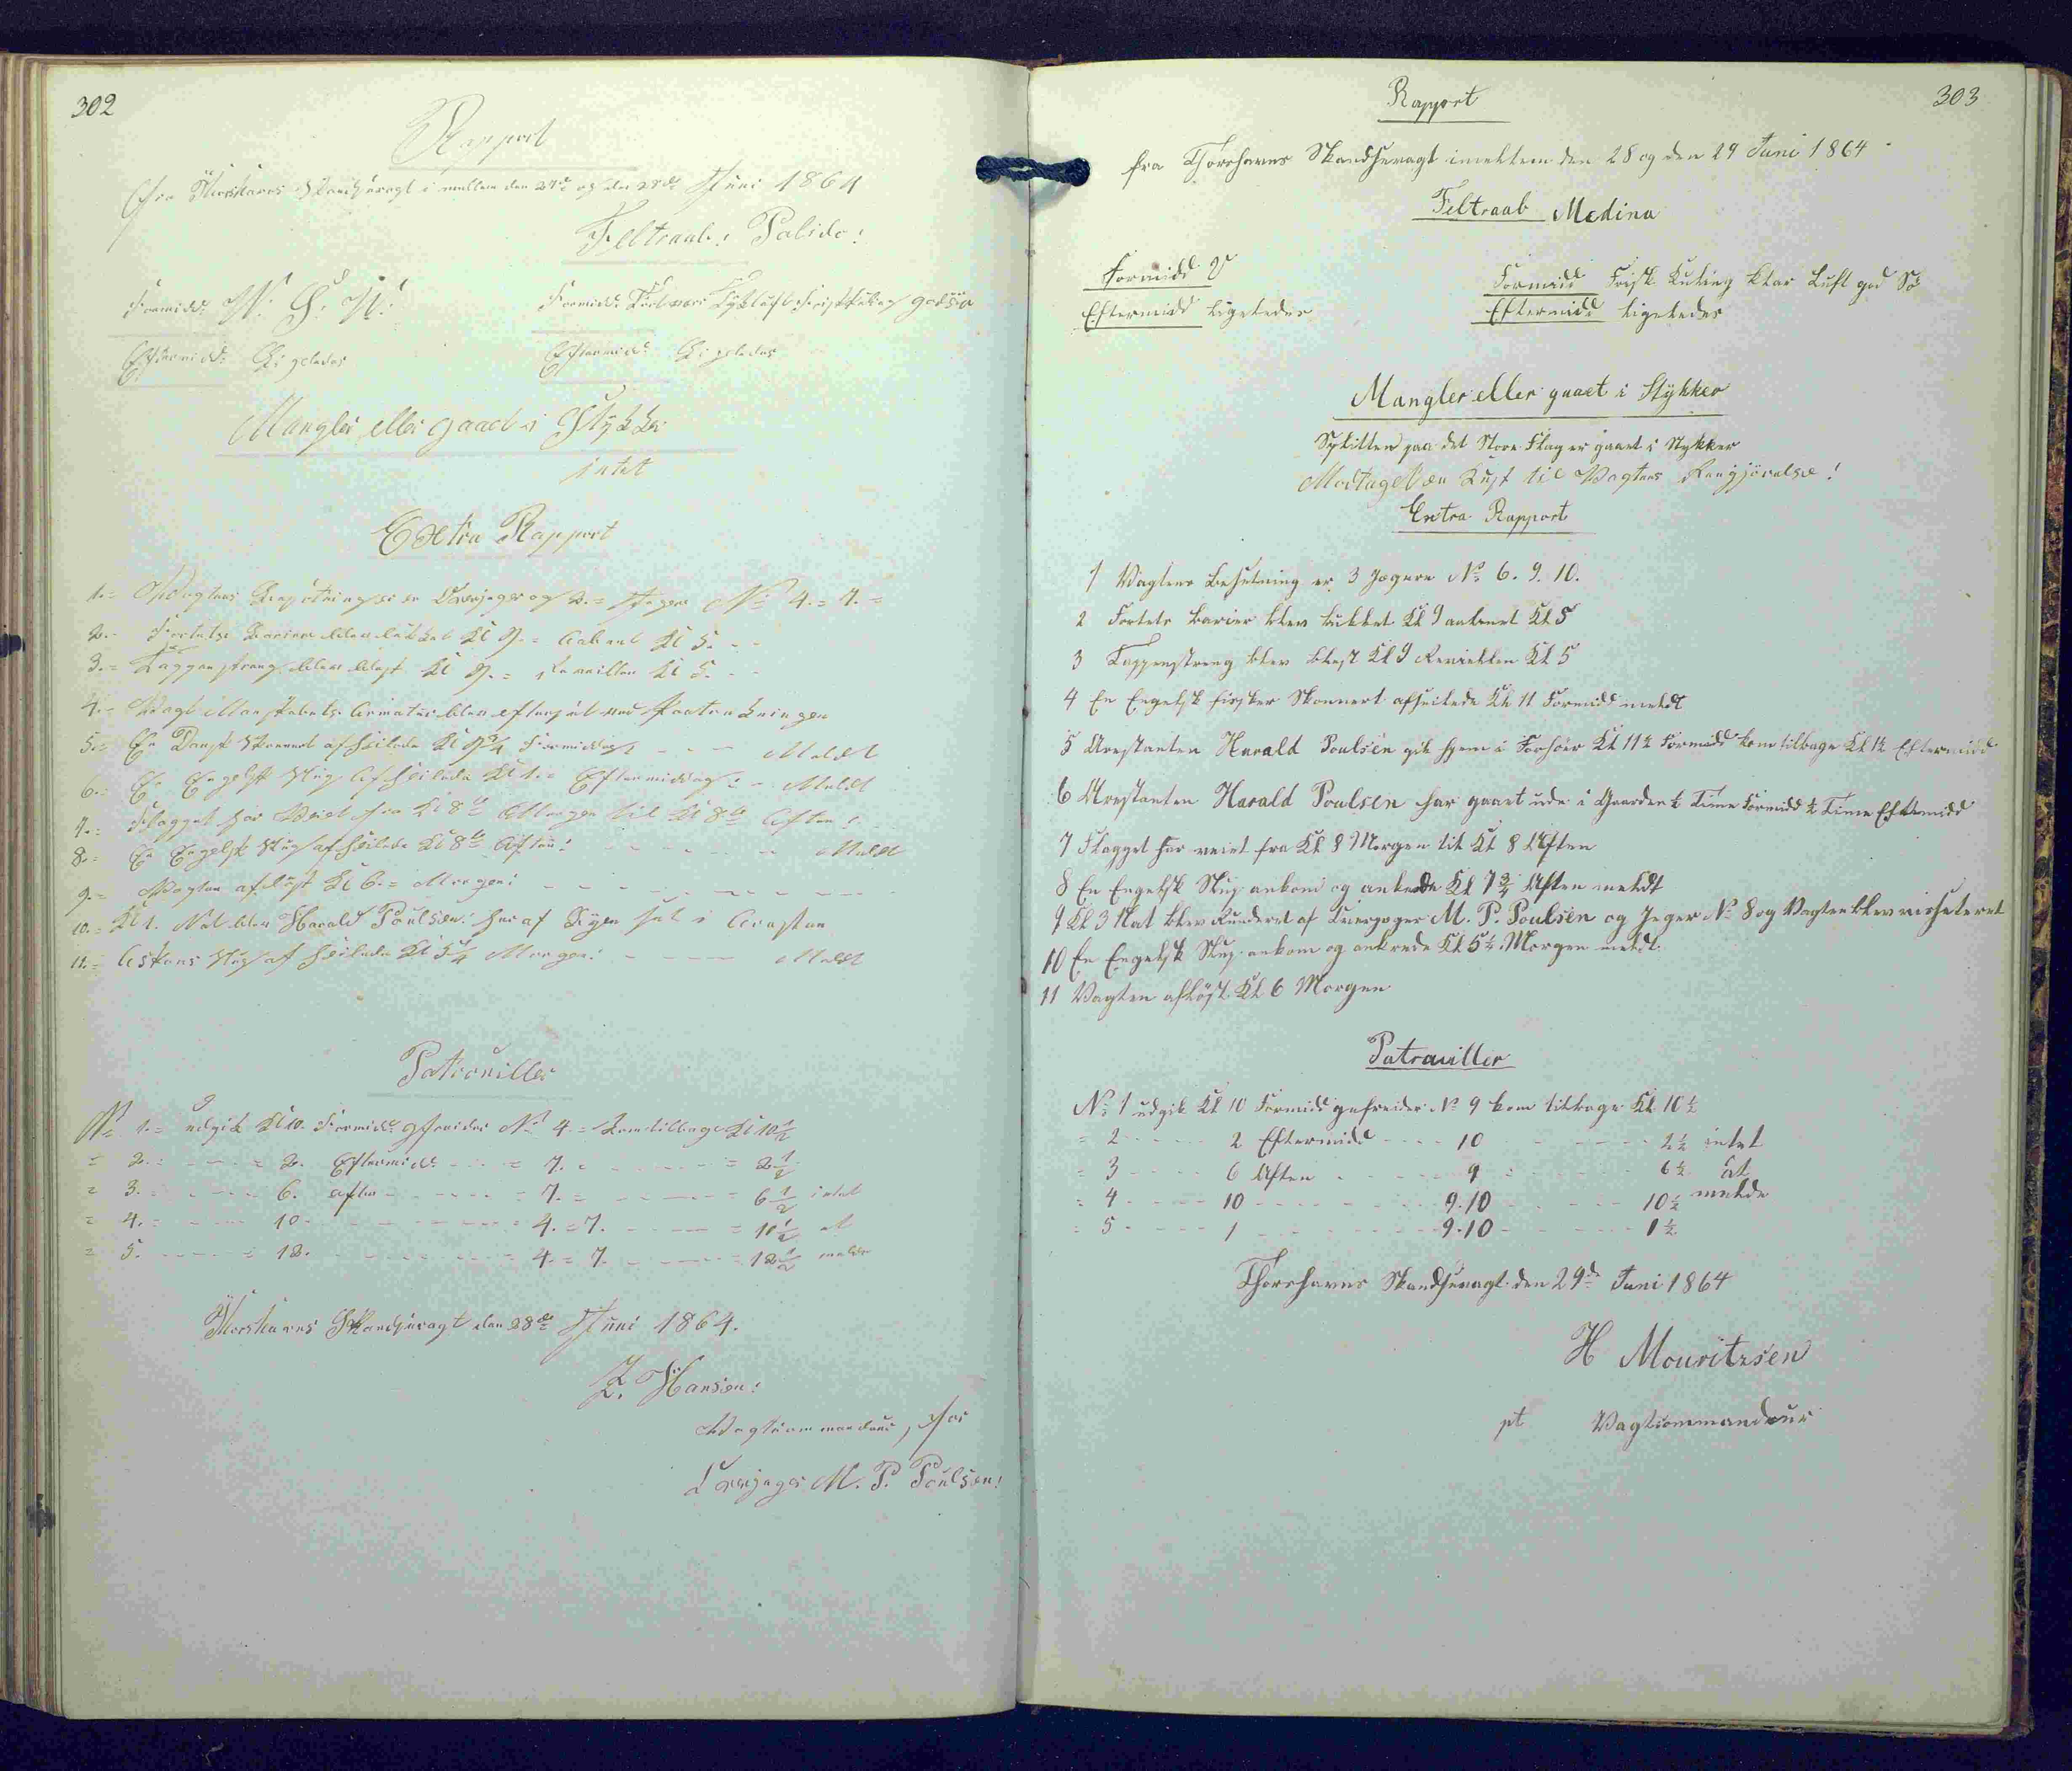 302
Rapport
Fra Thorshavns Skandsevagt i mellem den 27de og den 28de Juni 1864
Feltraab: Palido:
Formidd: N: S: W: Formidd: Tyk luft Frisk Kuling god Sø
Eftermidd: Ligeledes Eftermidd: Ligeledes
Mangler eller gaaet i Stykker
intet
Extra Rapport
1.= Vagtens Besætning er en Overjæger og 2.= Jægere No 4.= 7.=
2.= Fortets Barriere blev lukket Kl 9.= aabnet Kl 5.
3.= Tappenstreng blev blæst Kl 9.= Reveillen Kl 5.
4.= Vagt Mandskabets Armatur blev efterset ved
5.= En Dansk Skonnert afseilede Kl 9 3/4 Formiddag Meldt
6.= En Engelsk Slup Afseilede Kl 1.= Eftermiddag: Meldt
7.= Flagget har Veiet fra Kl 8te Morgen til Kl 8te Aften:
8.= En Engelsk Slup afseilede Kl 8te Aften: Meldt
9.= Vagten afløst Kl 6.= Morgen:
10.= Kl 1. Nat blev Harald Poulsen: her af Byen sat i Arresten
11.= Slup afseilede Kl 5 1/4 Morgen: Meldt
Patrouiller
No 1.= udgik Kl 10. Formidd: gefreider No 4.= kom tilbage Kl 10 1/2
= 2.= = 2. Eftermidd: = 7.= = 2 1/2
= 3.= 6. aften = 7.= = 6 1/2 intet
= 4.= 10 = 4.= 7. = 10 1/2 at
= 5. = 12. 4.= 7. = 12 1/2 melde
Thorshavns Skandsevagt den 28de Juni 1864.
Z. Hansen:
Vagtcommandeur, for
Overjæger M. P. Poulsen:
Rapport 303
fra Thorshavns Skandsevagt imellem den 28 og den 29 Juni 1864
Feltraab Medina
Formidd V Formidd Frisk Kuling klar Luft god Sø
Eftermidd ligeledes Eftermidd ligeledes
Mangler eller gaaet i Stykker
Spkilten paa det Store Flag er gaaet i Stykker
Modtaget en Kust til Vagtens Rengjörelse!
Extra Rapport
1 Vagtens Besætning er 3 Jægere No 6. 9. 10.
2 Fortets Barier blev lukket Kl 9 aabnet Kl 5
3 Tappenstreng blev blæst Kl 9 Revieillen Kl 5
4 En Engelsk fisker Skonnert afseilede Kl 11 Formidd meldt
5 Arestanten Harald Poulsen gik hjem i Forhör Kl 11 1/2 Formidd kom tilbage Kl 1 1/2 Eftermidd
6 Arestanten Harald Poulsen har gaaet ude i Gaarden 1/2 Time Formidd 1/2 Time Eftermidd
7 Flagget har veiet fra Kl 8 Morgen til Kl 8 Aften
8 En Engelsk Slup ankom og ankrede Kl 7 3/4 Aften meldt
9 Kl 3 Nat blev Runderet af Overjæger M. P. Poulsen og Jeger No 8 og Vagten blev visiteret
10 En Engelsk Slup ankom og ankrede Kl 5 1/2 Morgen meldt.
11 Vagten aflöst Kl 6 Morgen
Patrouiller
No 1 udgik Kl 10 Formidd gefreider No 9 kom tilbage Kl 10 1/2
= 2 2 Eftermidd 10 2 1/2 intet
= 3 6 Aften 9 6 1/2 at
= 4 10 9.10 10 1/2 melde
= 5 1 9.10 1 1/2
Thorshavns Skandsevagt den 29de Juni 1864
H Mouritzsen
pt Vagtcommandeur